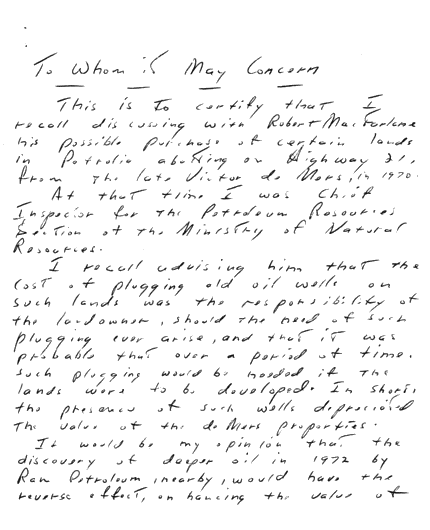 To Whom it May Concern
This is to certify that I
recall discussing with Robert MacFarlane
his possible purchase of certain lands
in Petrolia abutting on Highway 21,
from the late Victor de Mers, in 1970.
At that time I was Chief
Inspector for the Petroleum Resources
Section of the Ministry of Natural
Resources.
I recall advising him that the
cost of plugging old oil wells on
such lands was the responsibility of
the landowner, should the need of such
plugging ever arise, and that it was
probable that over a period of time,
such plugging would be needed if the
lands were to be developed. In short,
the presence of such wells depreciated
the value of the deMers properties.
It would be my opinion that the
discovery of deeper oil in 1972 by
Ram Petroleum, nearby, would have the
reverse effect, enhancing the value of